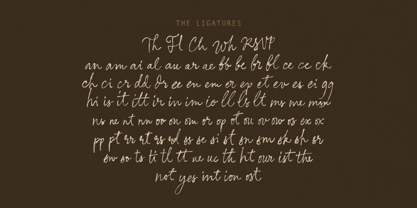 THE LIGATURES
Th Fl Ch Wh RSVP
an am ai al au ar ae bb be br bl ce ck
ch ci cr dd Dr ee en em er ep et ev es ei gg
hi is it itt ir in im io ll ls lt ms me mix
ns ne nt nn oo on om or op ot ou ov ow os ex ox
pp pt rr rt rs rd ss se si st sn sm sk sh sr
sw so ts ti tl tt ue uc th ht our ist the
not yes int ion ost